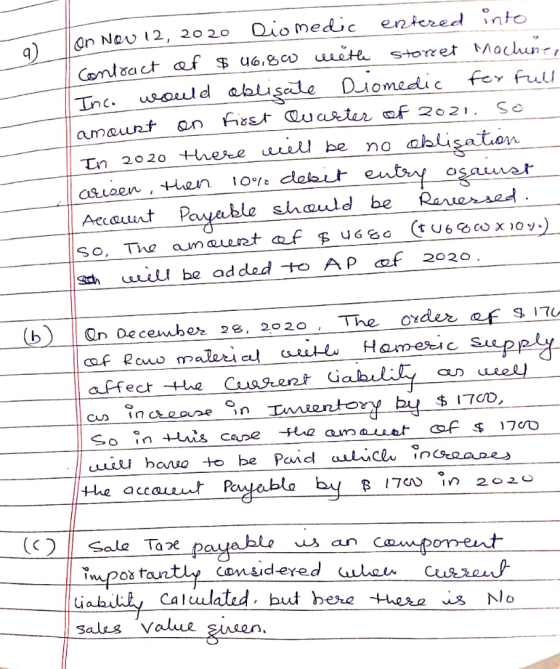 a) On Nov 12, 2020 Diomedic entered into
Contract of $ 46,800 with storret Machine,
Inc. would obligate Diomedic for full
amount on first Quarter of 2021. So
In 2020 there will be no obligation
arisen, then 10% debit entry against
Account Payable should be Reversed.
So, The amount of $ 4680 ($ 46800 x 10%)
will be added to AP of 2020.
(b) On December 28, 2020, The order of $ 170
of Raw material with Homeric supply
affect the Current liability as well
as increase in Inventory by $ 1700,
So in this case the amount of $ 1700
will have to be Paid which increases
the account Payable by $ 1700 in 2020
(c) Sale Tax payable is an component
importantly considered when current
liability calculated. but here there is No
sales value given.